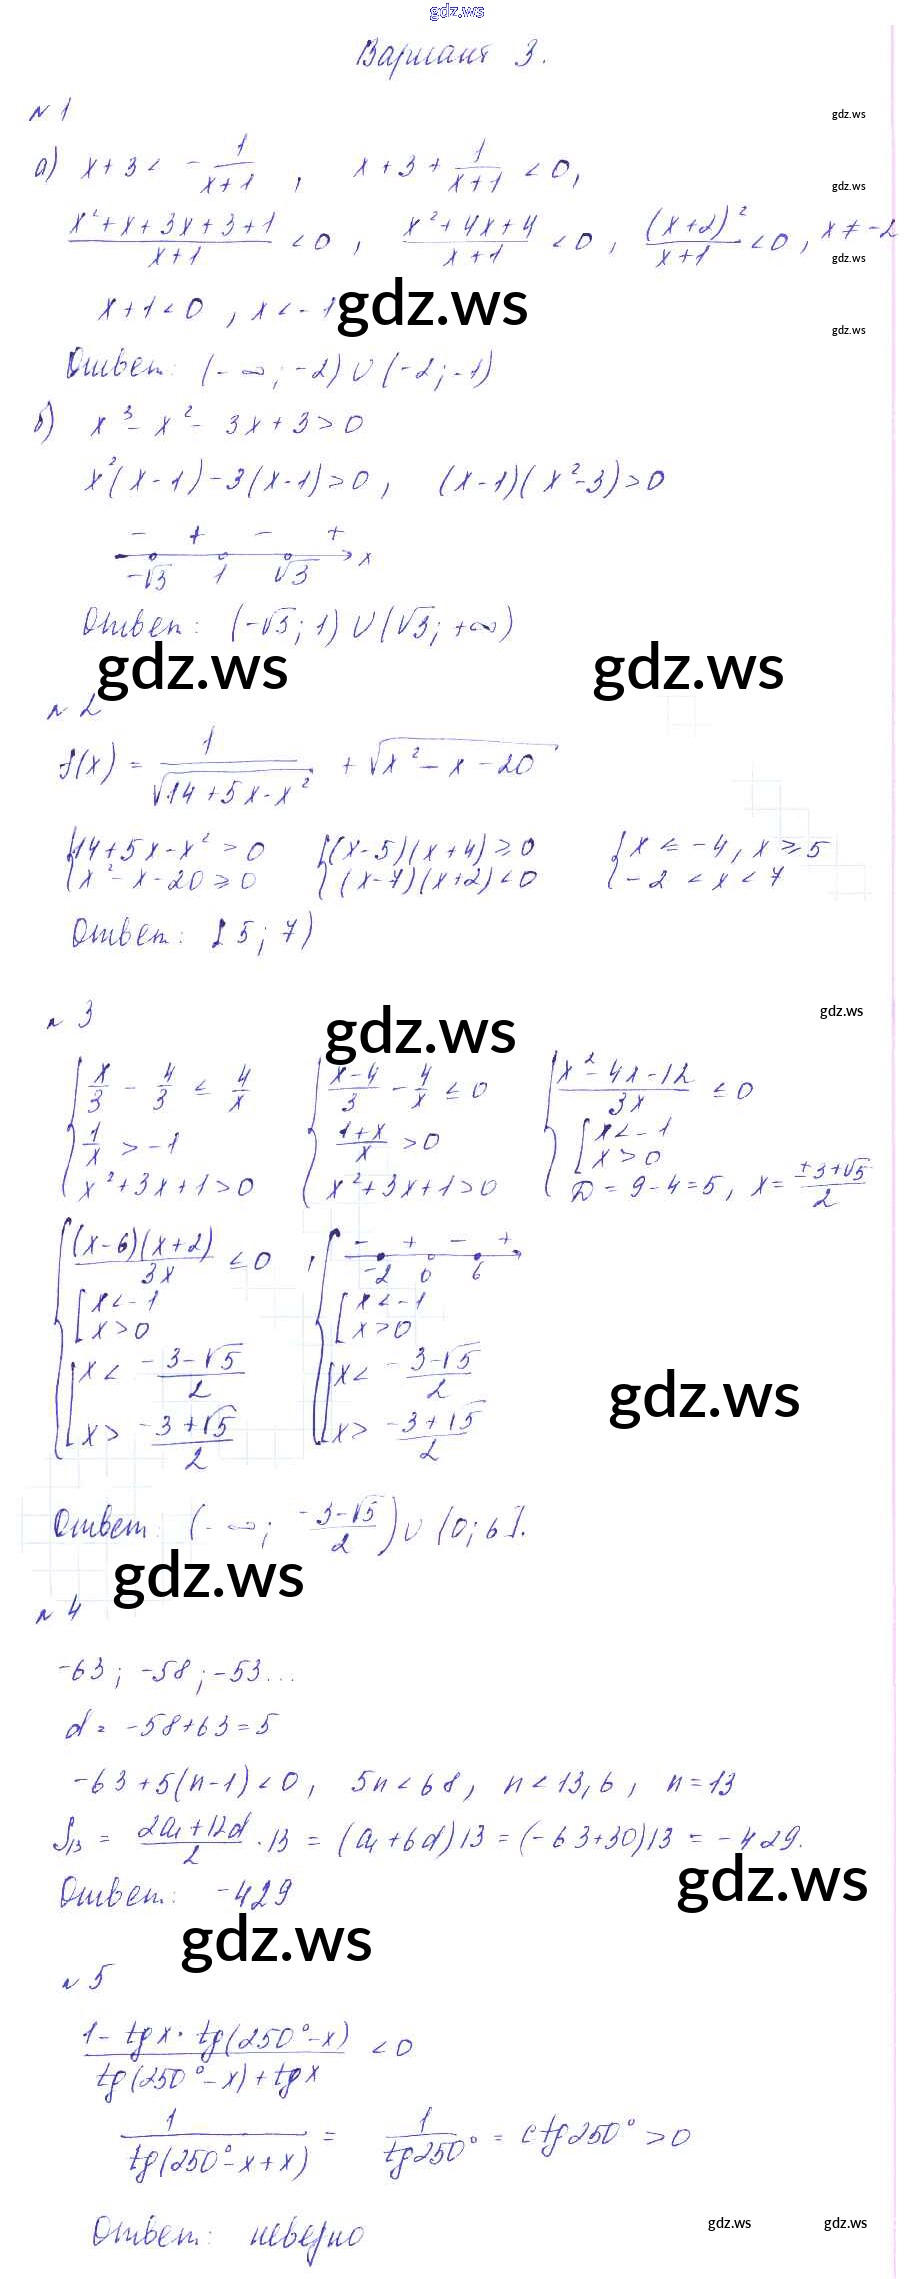 gdz.ws
Вариант 3.
№ 1
gdz.ws
а) x + 3 < - 1/(x+1) , x + 3 + 1/(x+1) < 0,
gdz.ws
(x²+x+3x+3+1)/(x+1) < 0 , (x²+4x+4)/(x+1) < 0 , (x+2)²/(x+1) < 0 , x ≠ -2
gdz.ws
x+1<0 , x<-1
gdz.ws
gdz.ws
Ответ: (-∞; -2) ∪ (-2; -1)
б) x³ - x² - 3x + 3 > 0
x²(x-1) - 3(x-1) > 0 , (x-1)(x²-3) > 0
- + - +
-√3 1 √3 x
Ответ: (-√3; 1) ∪ (√3; +∞)
gdz.ws gdz.ws
№ 2
f(x) = 1/√(14+5x-x²) + √(x²-x-20)
{14+5x-x² > 0 {(x-5)(x+4) ≥ 0 {x ≤ -4, x ≥ 5
{x²-x-20 ≥ 0 {(x-7)(x+2) < 0 {-2 < x < 7
Ответ: [5; 7)
№ 3
gdz.ws
gdz.ws
{x/3 - 4/3 ≤ 4/x {(x-4)/3 - 4/x ≤ 0 {(x²-4x-12)/3x ≤ 0
1/x > -1 (1+x)/x > 0 [x<-1
[x>0
x²+3x+1>0 x²+3x+1>0 D = 9-4=5, x = (±3+√5)/2
{(x-6)(x+2)/3x ≤ 0 , { - + - +
-2 0 6
[x<-1 [x<-1
[x>0 [x>0
[x < (-3-√5)/2 [x < (-3-√5)/2
gdz.ws
[x > (-3+√5)/2 [x > (-3+√5)/2
Ответ: (-∞; (-3-√5)/2) ∪ (0; 6].
gdz.ws
№ 4
-63; -58; -53...
d = -58+63=5
-63+5(n-1)<0, 5n<68, n<13,6, n=13
S₁₃ = (2a₁+12d)/2 · 13 = (a₁+6d)13 = (-63+30)13 = -429.
gdz.ws
Ответ: -429
gdz.ws
№ 5
(1 - tgx · tg(250°-x))/(tg(250°-x)+tgx) < 0
1/tg(250°-x+x) = 1/tg250° = ctg250° > 0
Ответ: неверно
gdz.ws gdz.ws